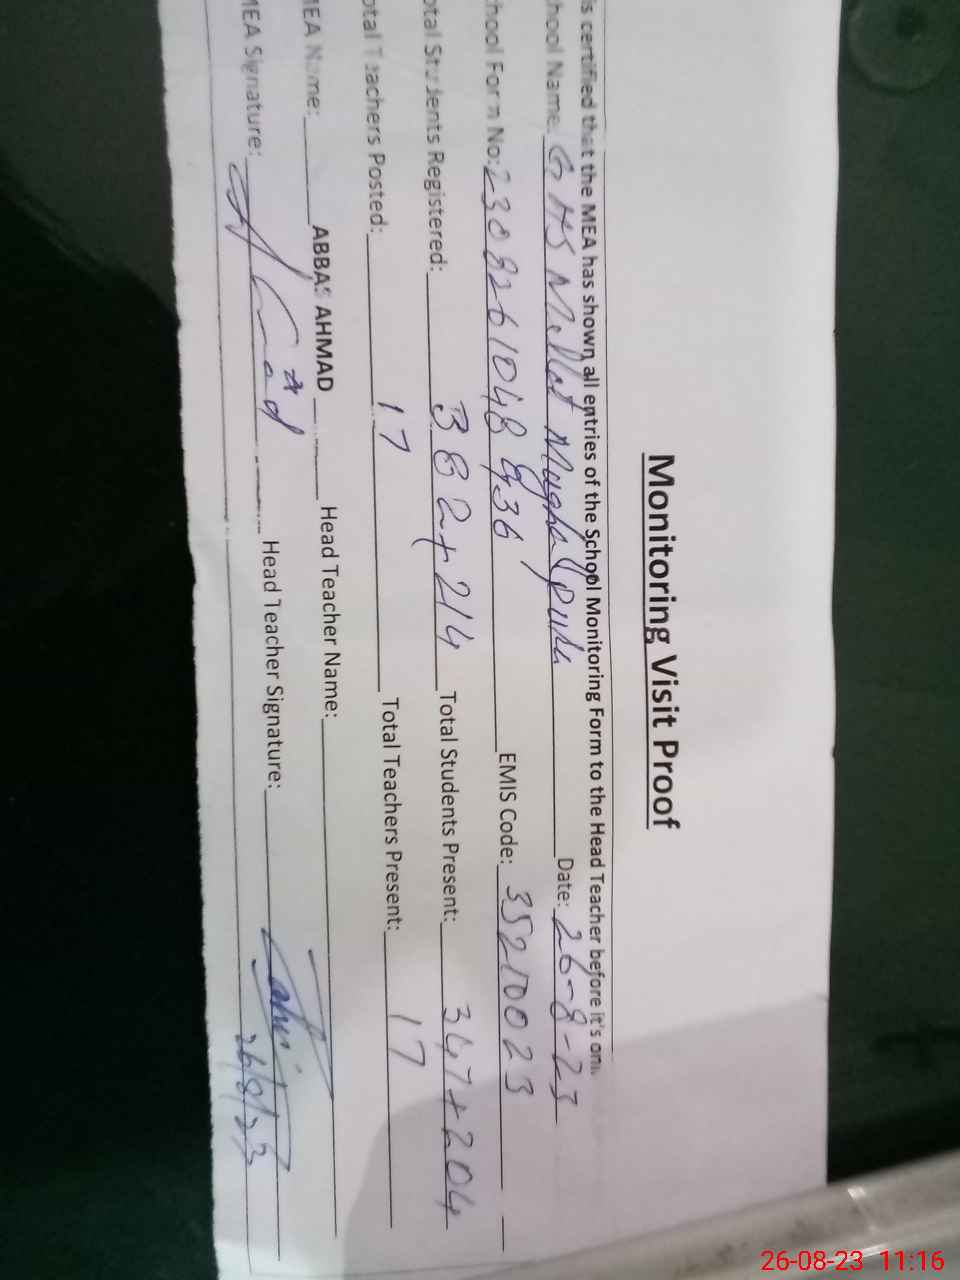 Monitoring Visit Proof
is certified that the MEA has shown all entries of the School Monitoring Form to the Head Teacher before it's onl
hool Name: GHS Millat Mughalpura Date: 26-8-23
hool Form No: 2308261048936 EMIS Code: 35210023
otal Students Registered: 382+214 Total Students Present: 347+204
otal Teachers Posted: 17 Total Teachers Present: 17
MEA Name: ABBAS AHMAD Head Teacher Name:
MEA Signature: Head Teacher Signature:
26/8/23
26-08-23 11:16